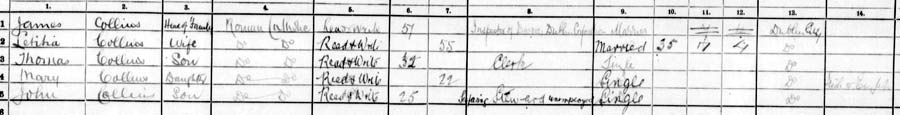 1. 2. 3. 4. 5. 6. 7. 8. 9. 10. 11. 12. 13. 14.
1 James Collins Head of Family Roman Catholic Read & Write 57 Inspector of Dublin Married Dublin City
2 Letitia Collins Wife Do Do Read & Write 55 Married 35 Do
3 Thomas Collins Son Do Do Read & Write 32 Clerk Single Do
4 Mary Collins Daughter Do Do Read & Write 22 Single Do
5 John Collins Son Do Do Read & Write 25 Steward unemployed Single Do
6